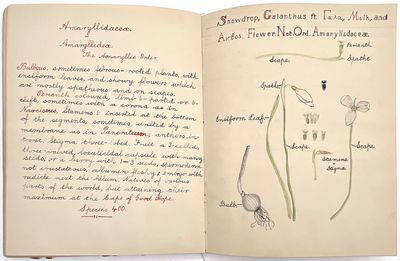 Amaryllidaceæ.
Amaryllideæ.
The Amaryllis Order.
Bulbous, sometimes fibrous-rooted plants, with
ensiform leaves, and showy flowers which
are mostly spathaceous and on scapes.
Perianth coloured, limb 6-parted or 6-
cleft, sometimes with a corona as in
Narcissus, stamens 6 inserted at the bottom
of the segments, sometimes united by a
membrane as in Pancratium; anthers in-
trorse. Stigma three-lobed. Fruit a 3-celled,
three-valved, loculicidal capsule with many
seeds, or a berry with 1-3 seeds, spermoderm
not crustaceous, albumen fleshy; embryo with
radicle next the hilum. Natives of various
parts of the world, but attaining their
maximum at the Cape of Good Hope.
Species 400.
Snowdrop, Galanthus fr. Γαλα, Milk, and
Ανθος, Flower. Nat. Ord. Amaryllidaceæ.
Perianth
Scape.
Spathe
Spathe.
Ensiform Leaf.
Scape.
Scape.
Stamens
+
Stigma
Bulb.